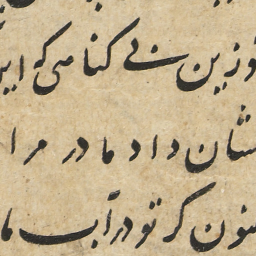 وزین بی کناهی که این
نشان داد مادر مرا
کنون کر تو در آب ما